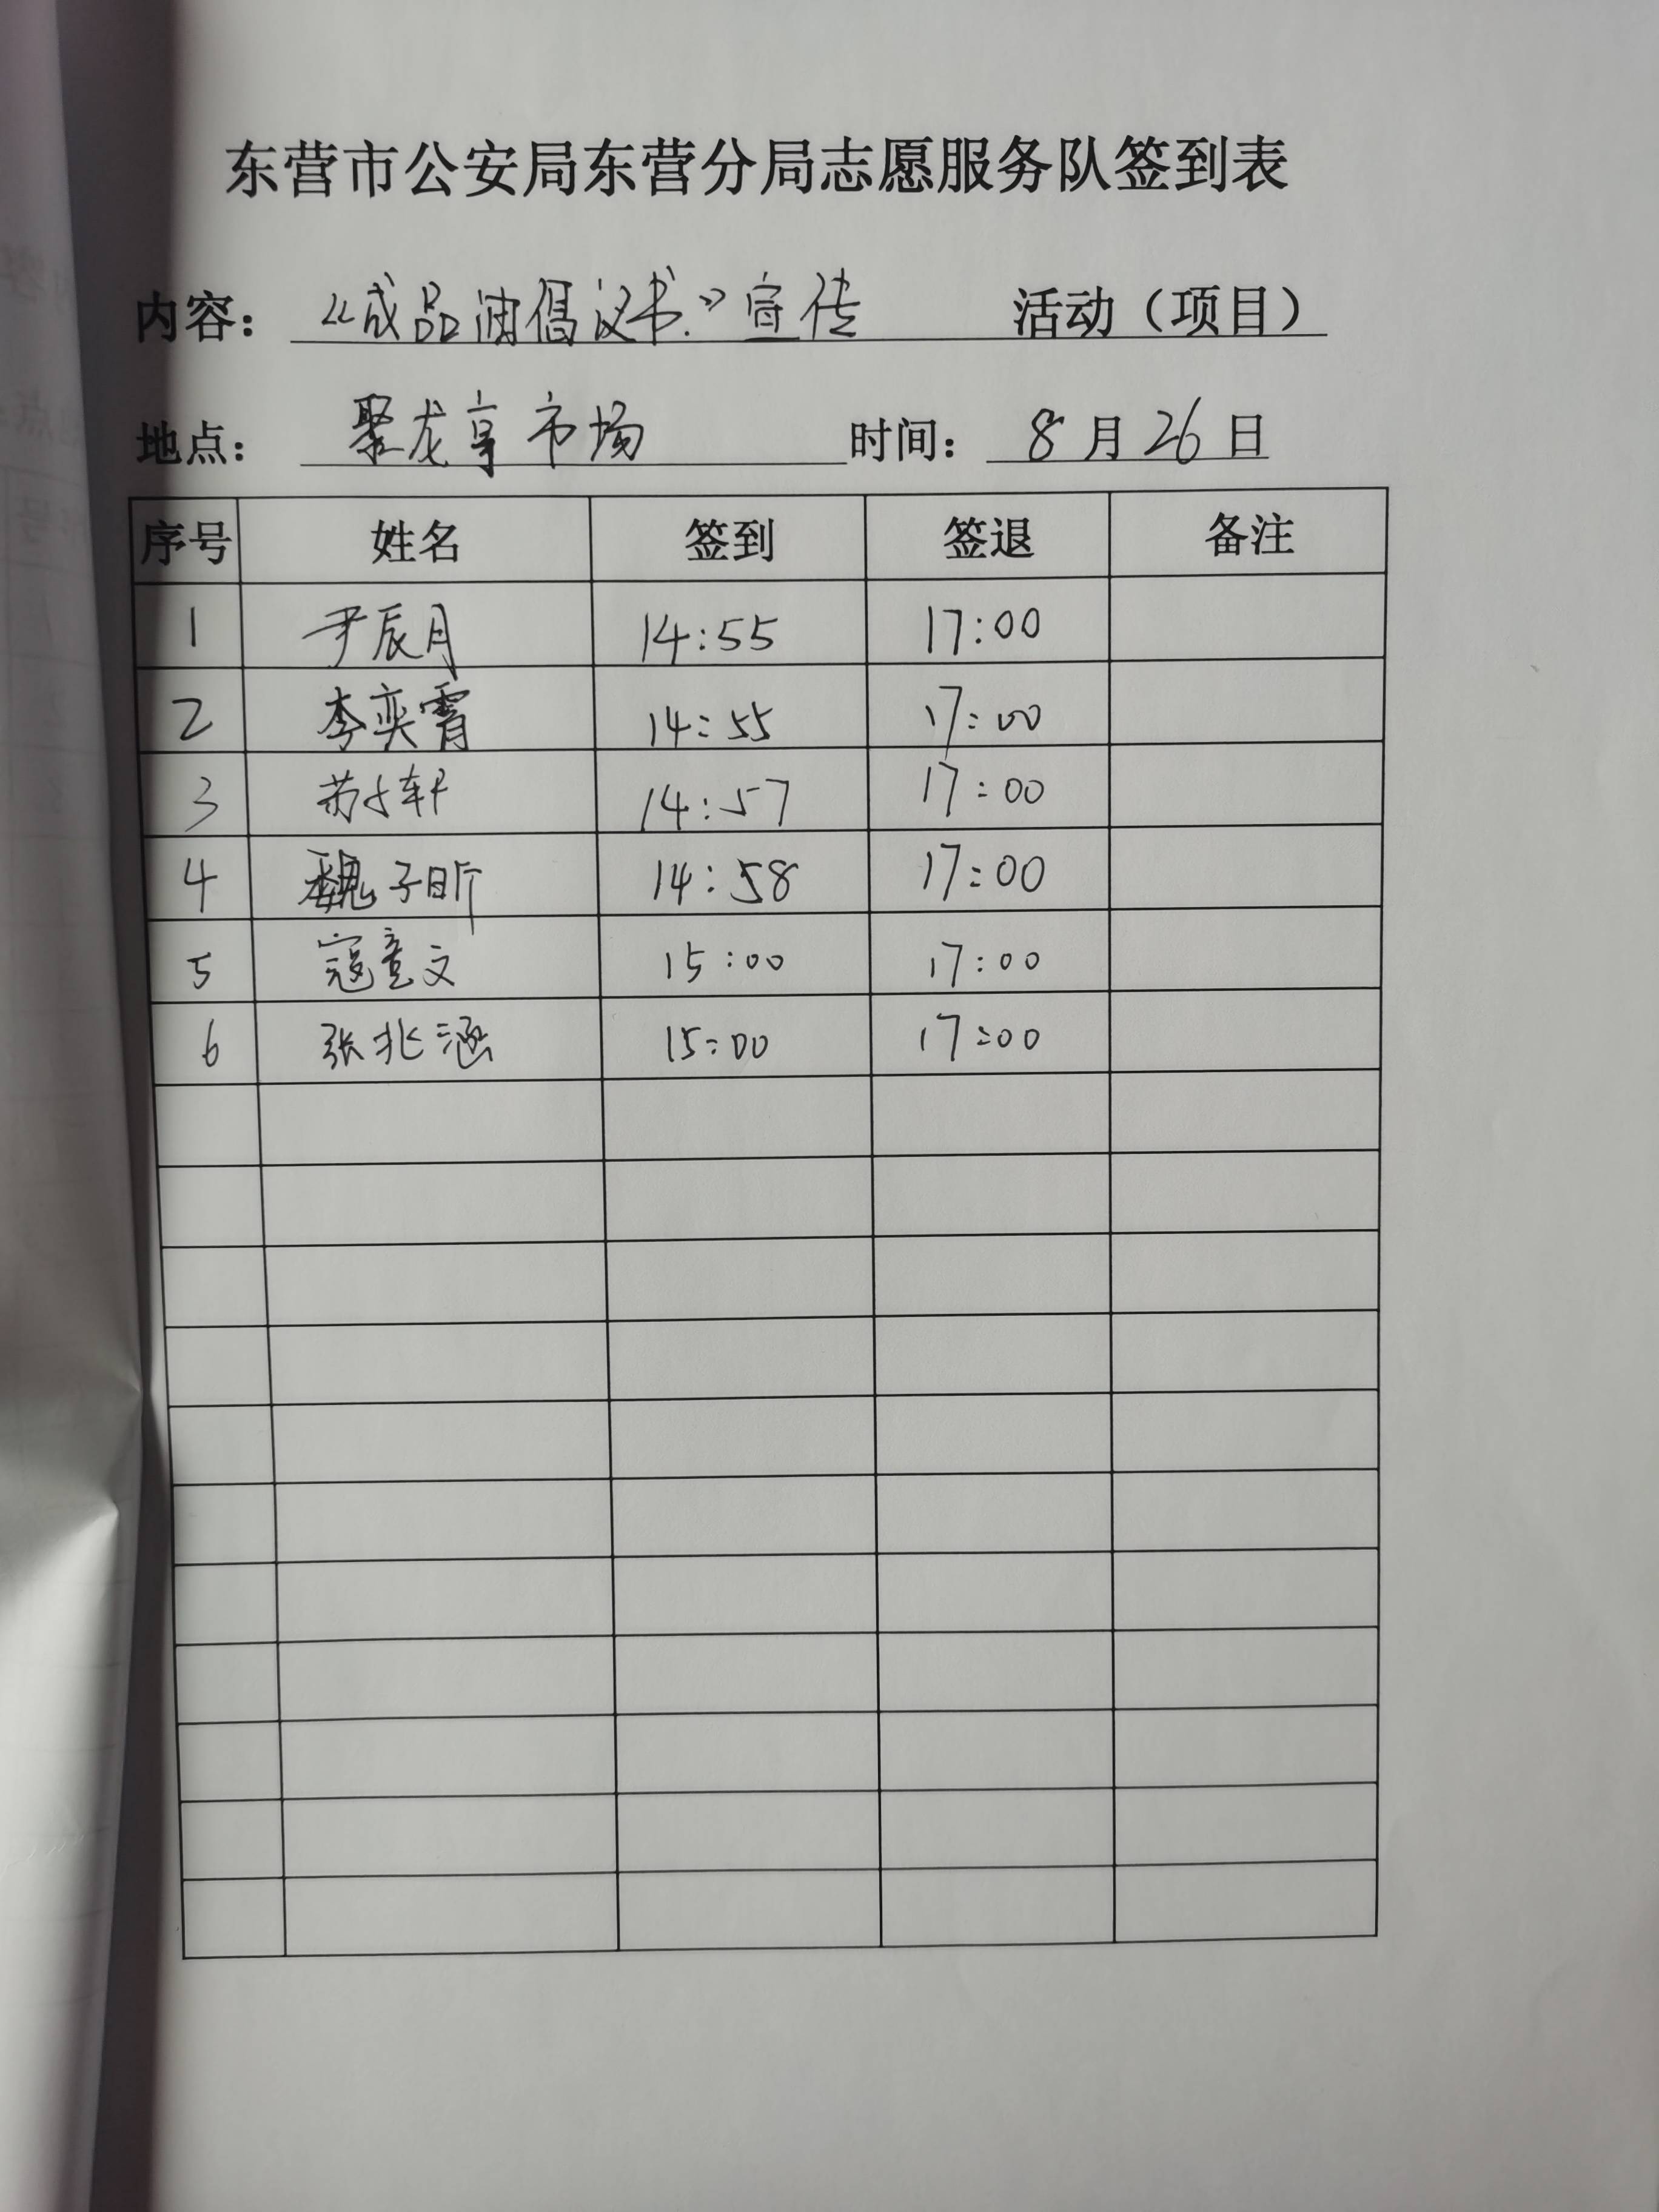 东营市公安局东营分局志愿服务队签到表
内容： 《成品油倡议书》宣传 活动（项目）
地点： 聚龙亨市场 时间： 8月26日
序号 姓名 签到 签退 备注
1 尹辰月 14:55 17:00
2 李奕霄 14:55 17:00
3 14:57 17:00
4 魏子昕 14:58 17:00
5 寇童文 15:00 17:00
6 张兆涵 15:00 17:00